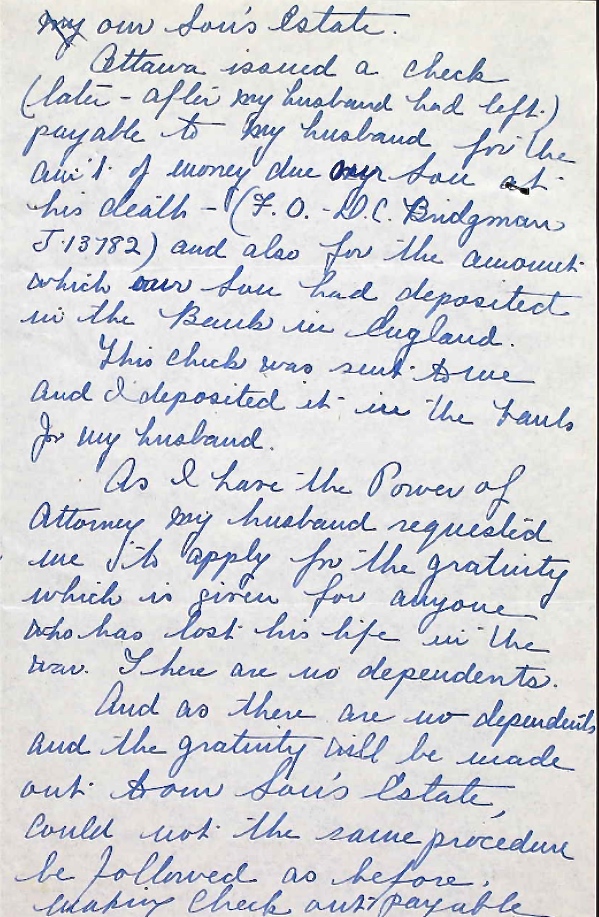 my our Son's Estate.
Ottawa issued a check
(later - after my husband had left.)
payable to my husband for the
am't. of money due our Son at
his death - (F.O. - D.C. Bridgman
J.13782) and also for the amount
which our Son had deposited
in the Bank in England.
This check was sent to me
and I deposited it in the bank
for my husband.
As I have the Power of
Attorney my husband requested
me to apply for the gratuity
which is given for anyone
who has lost his life in the
war. There are no dependents.
And as there are no dependents
and the gratuity will be made
out to our Son's Estate,
could not the same procedure
be followed as before,
making check out payable